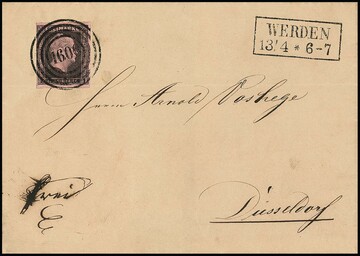 WERDEN
13/4 * 6-7
Herrn Arnold
frei
Düsseldorf